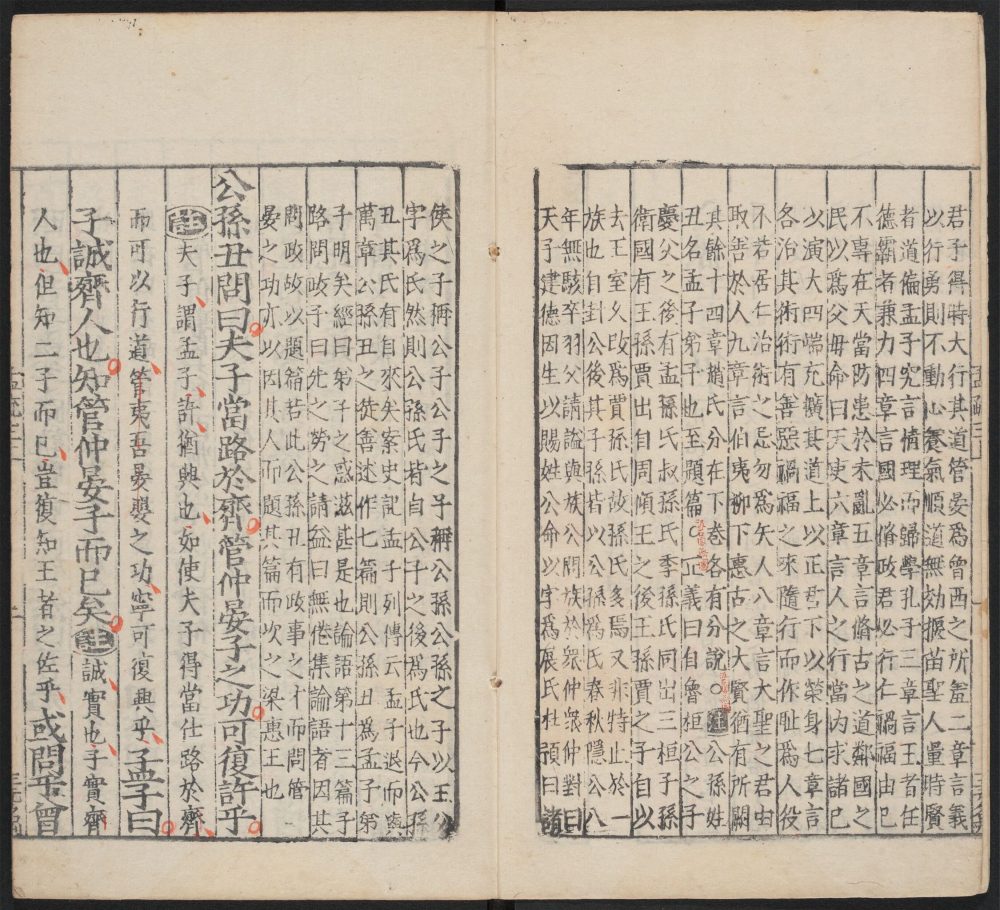 君子得時大行其道管晏爲曾西之所羞二章言義
以行勇則不動心養氣順道無効揠苗聖人量時賢
者道偏孟子究言情理而歸學孔子三章言王者任
德霸者兼力四章言國必脩政君必行仁禍福由己
不專在天當防患於未亂五章言脩古之道鄰國之
民以爲父母命曰天使六章言人之行當内求諸己
以演大四端充擴其道上以正君下以榮身七章言
各治其術術有善惡禍福之來隨行而作耻爲人役
不若居仁治術之忌勿爲矢人八章言大聖之君由
取善於人九章言伯夷柳下惠古之大賢猶有所闕
其餘十四章趙氏分在下卷各有分說○注公孫姓
丑名孟子弟子也至題篇○正義曰自魯桓公之子
慶父之後有孟孫氏叔孫氏季孫氏同出三桓子孫
衛國有王孫賈出自周頃王之後王孫賈之子自以
去王室久改爲賈孫氏故孫氏多焉又非特止於一
族也自封公後其子孫皆以公孫爲氏春秋隱公八
年無駭卒羽父請謚與族公問族於衆仲衆仲對曰
天子建德因生以賜姓公命以字爲展氏杜預曰諸
侯之子稱公子公子之子稱公孫公孫之子以王父
字爲氏然則公孫氏皆自公子之後爲氏也今公孫
丑其氏有自來矣案史記孟子列傳云孟子退而與
萬章公孫丑之徒善述作七篇則公孫丑爲孟子弟
子明矣經曰弟子之惑滋甚是也論語第十三篇子
路問政子曰先之勞之請益曰無倦集論語者因其
問政故以題篇若此公孫丑有政事之才而問管
晏之功亦以因其人而題其篇而次之梁惠王也
公孫丑問曰夫子當路於齊管仲晏子之功可復許乎
注夫子謂孟子許猶興也如使夫子得當仕路於齊
而可以行道管夷吾晏嬰之功寧可復興乎孟子曰
子誠齊人也知管仲晏子而已矣注誠實也子實齊
人也但知二子而已豈復知王者之佐乎或問乎曾